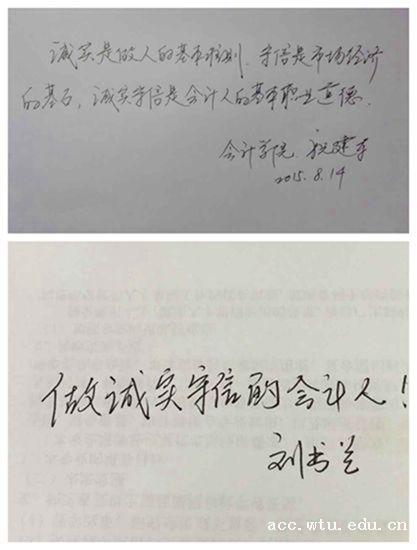 诚实是做人的基本准则，守信是市场经济
的基石，诚实守信是会计人的基本职业道德.
会计学院 祝建军
2015.8.14
做诚实守信的会计人！
刘书兰
acc.wtu.edu.cn